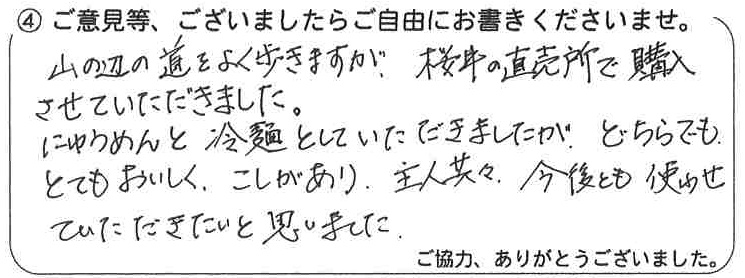 ④ ご意見等、ございましたらご自由にお書きくださいませ。
山の辺の道をよく歩きますが、桜井の直売所で購入
させていただきました。
にゅうめんと冷麺としていただきましたが、どちらでも、
とてもおいしく、こしがあり、主人共々、今後とも使わせ
ていただきたいと思いました。
ご協力、ありがとうございました。